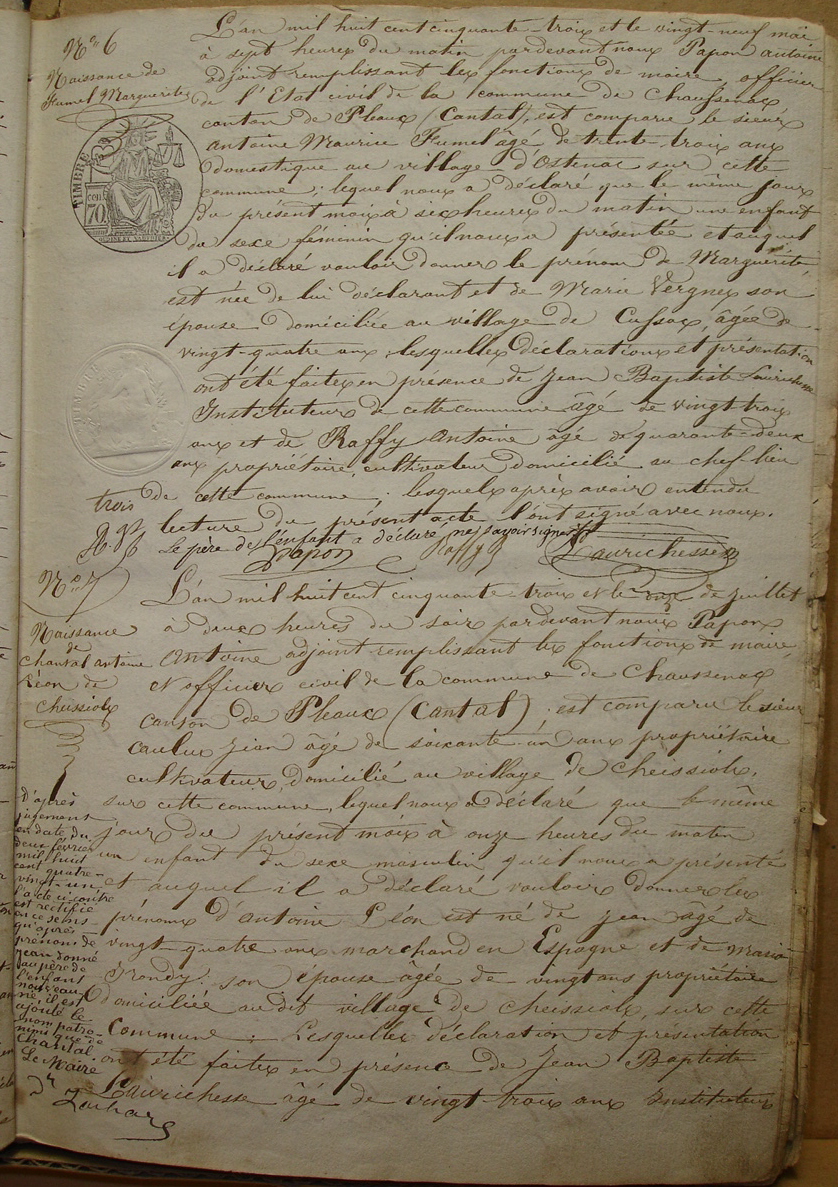 N° 6
Naissance de
Fumel Marguerite
L'an mil huit cent cinquante trois et le vingt-neuf mai
à sept heures du matin pardevant nous Papon antoine
adjoint remplissant les fonctions de maire, officier
de l'Etat civil de la commune de Chaussenac
canton de Pleaux (Cantal), est comparu le sieur
Antoine Maurice Fumel âgé de trente-trois ans
domestique au village d'Ostenac sur cette
commune ; lequel nous a déclaré que le même jour
du présent mois à six heures du matin une enfant
du sexe féminin qu'il nous a présentée et auquel
il a déclaré vouloir donner le prénom de Marguerite
est née de lui déclarant et de Marie Vergnes son
épouse domiciliée au village de Cussac, âgée de
vingt-quatre ans, lesquelles déclarations et présentation
ont été faites en présence de Jean Baptiste Laurichesse
Instituteur de cette commune âgé de vingt trois
ans et de Raffy Antoine âgé de quarante-deux
ans propriétaire cultivateur domicilié au chef-lieu
de cette commune ; lesquels après avoir entendu
trois
lecture du présent acte l'ont signé avec nous.
Le père de l'enfant a déclaré ne savoir signer
Papon Raffy Laurichesse
TIMBRE
70
N° 7
Naissance
de
chantal antoine
Léon de
cheissiols
L'an mil huit cent cinquante-trois et le onze de juillet
à deux heures du soir pardevant nous Papon
Antoine adjoint remplissant les fonctions de maire
et officier civil de la commune de Chaussenac
canton de Pleaux (Cantal) ; est comparu le sieur
caulus Jean âgé de soixante-un ans propriétaire
cultivateur, domicilié au village de cheissiols,
sur cette commune, lequel nous a déclaré que le même
jour du présent mois à onze heures du matin
un enfant du sexe masculin qu'il nous a présenté
et auquel il a déclaré vouloir donner les
prénoms d'Antoine Léon est né de Jean âgé de
vingt quatre ans marchand en Espagne et de Maria
son épouse âgée de vingt ans propriétaire
domiciliée audit village de cheissiols, sur cette
Commune ; Lesquelles déclaration et présentation
ont été faites en présence de Jean Baptiste
Laurichesse âgé de vingt-trois ans instituteur
D'après
jugement
en date du
deux février
mil huit
cent quatre-
vingt-un
l'acte ci-contre
est rectifié
en ce sens
qu'après
prénom de
Jean donné
au père de
l'enfant
nouveau
né, il est
ajouté le
nom patro-
nimique de
Chantal
Le Maire